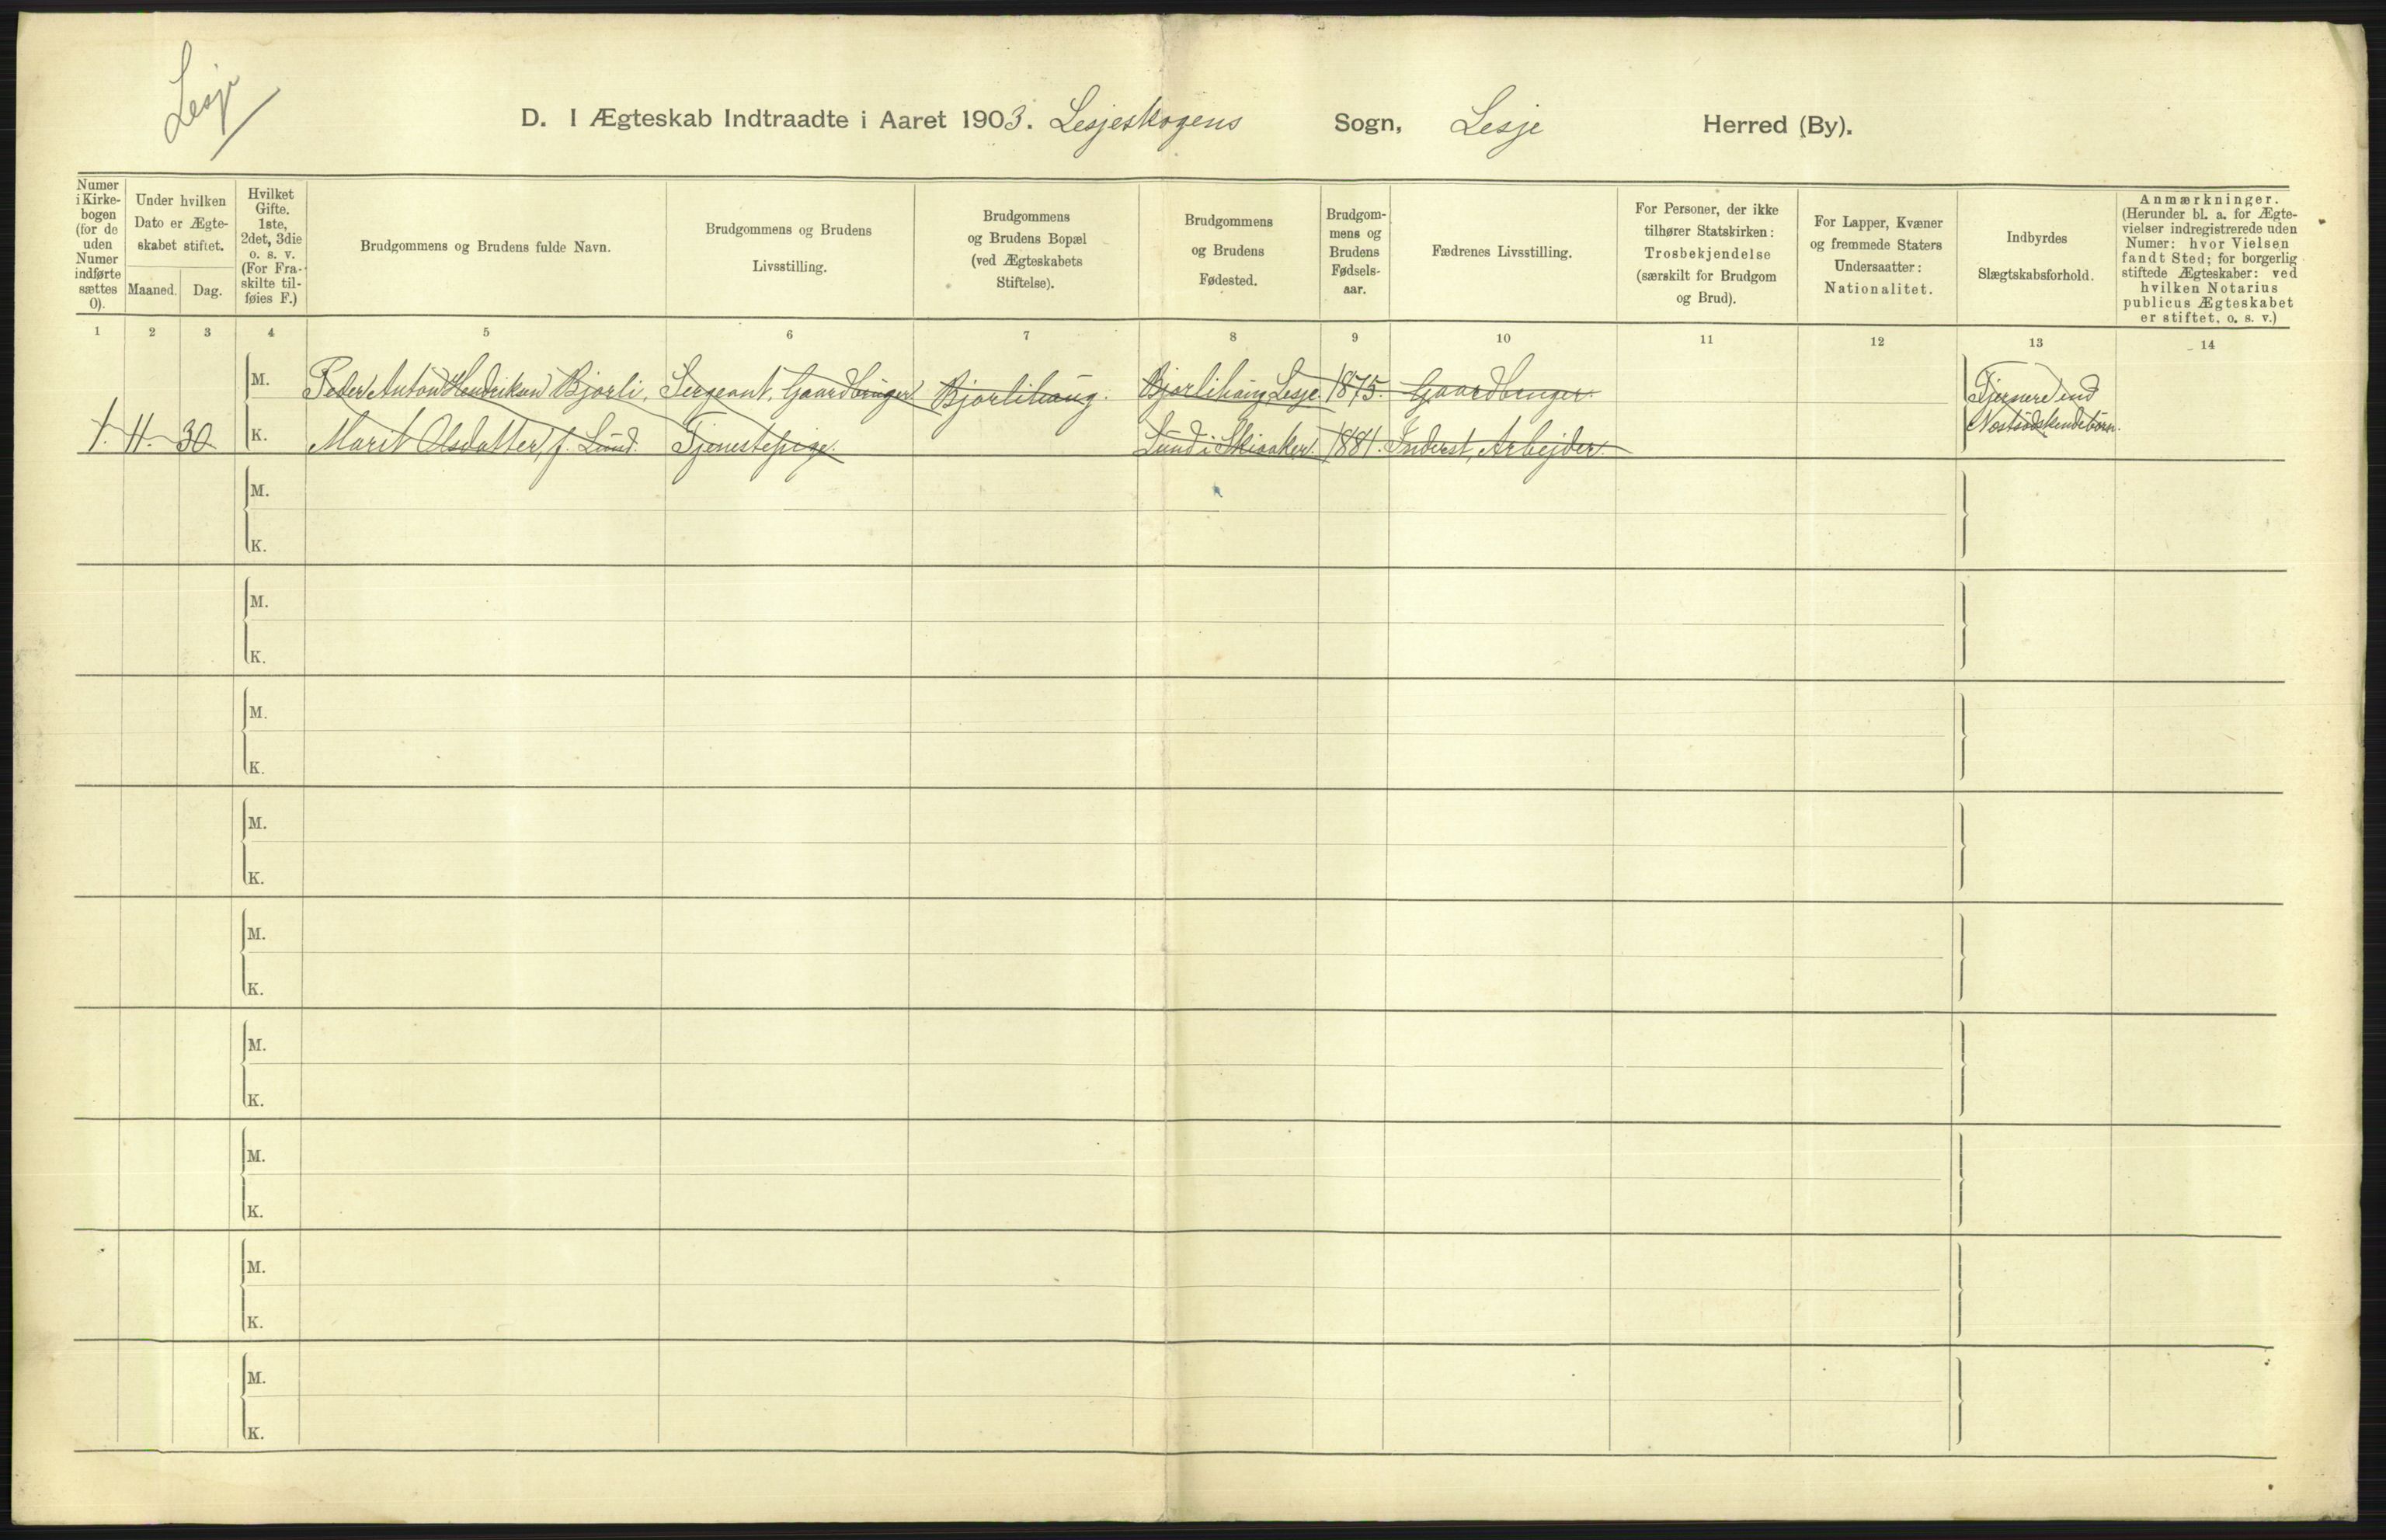 Lesje
D. I Ægteskab Indtraadte i Aaret 1903. Lesjeskogens Sogn, Lesje Herred (By).
Numer i Kirke-bogen (for de uden Numer indførte sættes 0).
Under hvilken Dato er Ægte-skabet stiftet.
Maaned. Dag.
Hvilket Gifte. 1ste, 2det, 3die o. s. v. (For Fra-skilte til-føies F.)
Brudgommens og Brudens fulde Navn.
Brudgommens og Brudens Livsstilling.
Brudgommens og Brudens Bopæl (ved Ægteskabets Stiftelse).
Brudgommens og Brudens Fødested.
Brudgom-mens og Brudens Fødsels-aar.
Fædrenes Livsstilling.
For Personer, der ikke tilhører Statskirken: Trosbekjendelse (særskilt for Brudgom og Brud).
For Lapper, Kvæner og fremmede Staters Undersaatter: Nationalitet.
Indbyrdes Slægtskabsforhold.
Anmærkninger. (Herunder bl. a. for Ægte-vielser indregistrerede uden Numer: hvor Vielsen fandt Sted; for borgerlig stiftede Ægteskaber: ved hvilken Notarius publicus Ægteskabet er stiftet, o. s. v.)
1 2 3 4 5 6 7 8 9 10 11 12 13 14
M. Peder Anton Hendriksen Bjorli. Sergeant, Gaardbruger Bjorlihaug. Bjorlihaug, Lesje. 1875. Gaardbruger. Fjernere end
1. 11. 30 K. Marit Olsdatter, f. Lund. Tjenestepige. Lund i Skiaker. 1881. Inderst, Arbejder. Næstsødskendebørn.
M.
K.
M.
K.
M.
K.
M.
K.
M.
K.
M.
K.
M.
K.
M.
K.
M.
K.